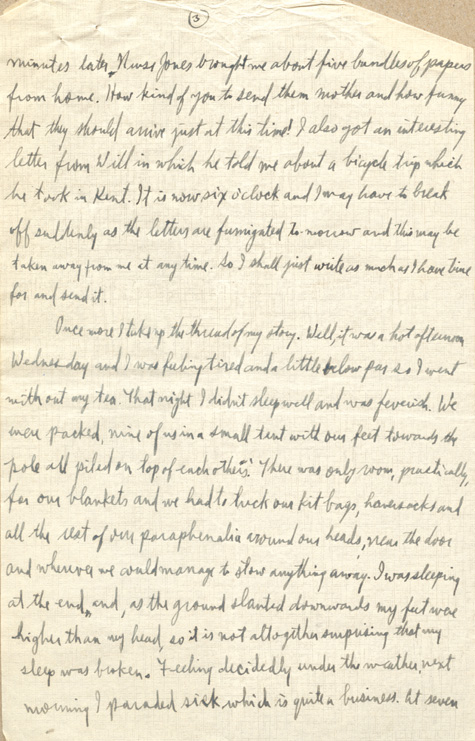 3
minutes later, Nurse Jones brought me about five bundles of papers
from home. How kind of you to send them mother and how funny
that they should arrive just at this time! I also got an interesting
letter from Will in which he told me about a bicycle trip which
he took in Kent. It is now six o'clock and I may have to break
off suddenly as the letters are fumigated to-morrow and this may be
taken away from me at any time. So I shall just write as much as I have time
for and send it.
Once more I take up the thread of my story. Well, it was a hot afternoon
Wednesday and I was feeling tired and a little below par so I went
without my tea. That night I didn't sleep well and was feverish. We
were packed, nine of us in a small tent with our feet towards the
pole all piled on top of each others'. There was only room, practically,
for our blankets and we had to tuck our kit bags, haversacks and
all the rest of our paraphenalia around our heads, near the door
and wherever we could manage to stow anything away. I was sleeping
at the end, and, as the ground slanted downwards my feet were
higher than my head, so it is not altogether surprising that my
sleep was broken. Feeling decidedly under the weather, next
morning I paraded sick, which is quite a business. At seven